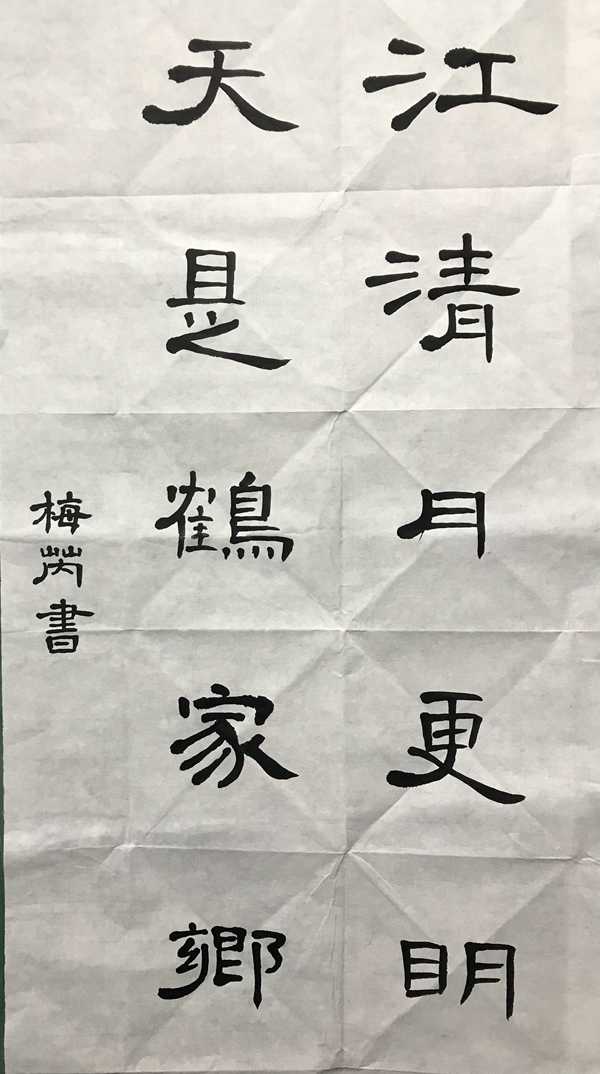 江清月更明
天是鶴家鄉
梅芮書